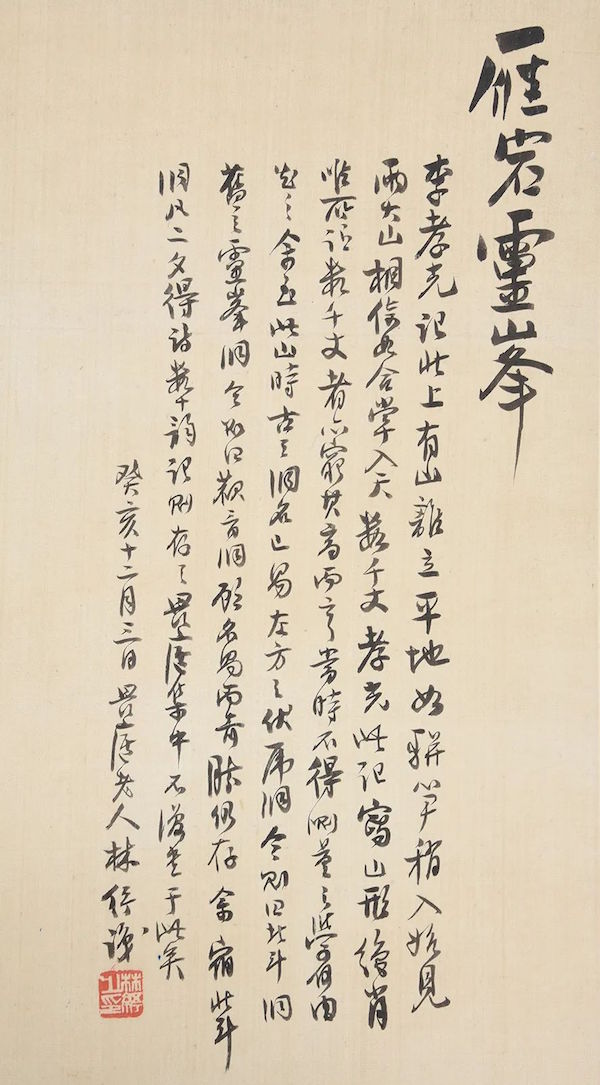 雁宕靈峯
李孝光記此上有山離立平地如駢笋稍入始見
兩大山相倚如合掌入天數千丈孝光此記寫山形繪肖
唯所謂數千丈者亦窮其高而言當時不得測量之學何由
知之余至此山時古之洞名已易左方之伏虎洞今則曰北斗洞
舊之靈峯洞今則曰觀音洞名易而仍存余宿北斗
洞凡二夕得詩數十韵記則存之畏廬集中不復書于此矣
癸亥十二月三日畏廬老人林紓識
林紓之印